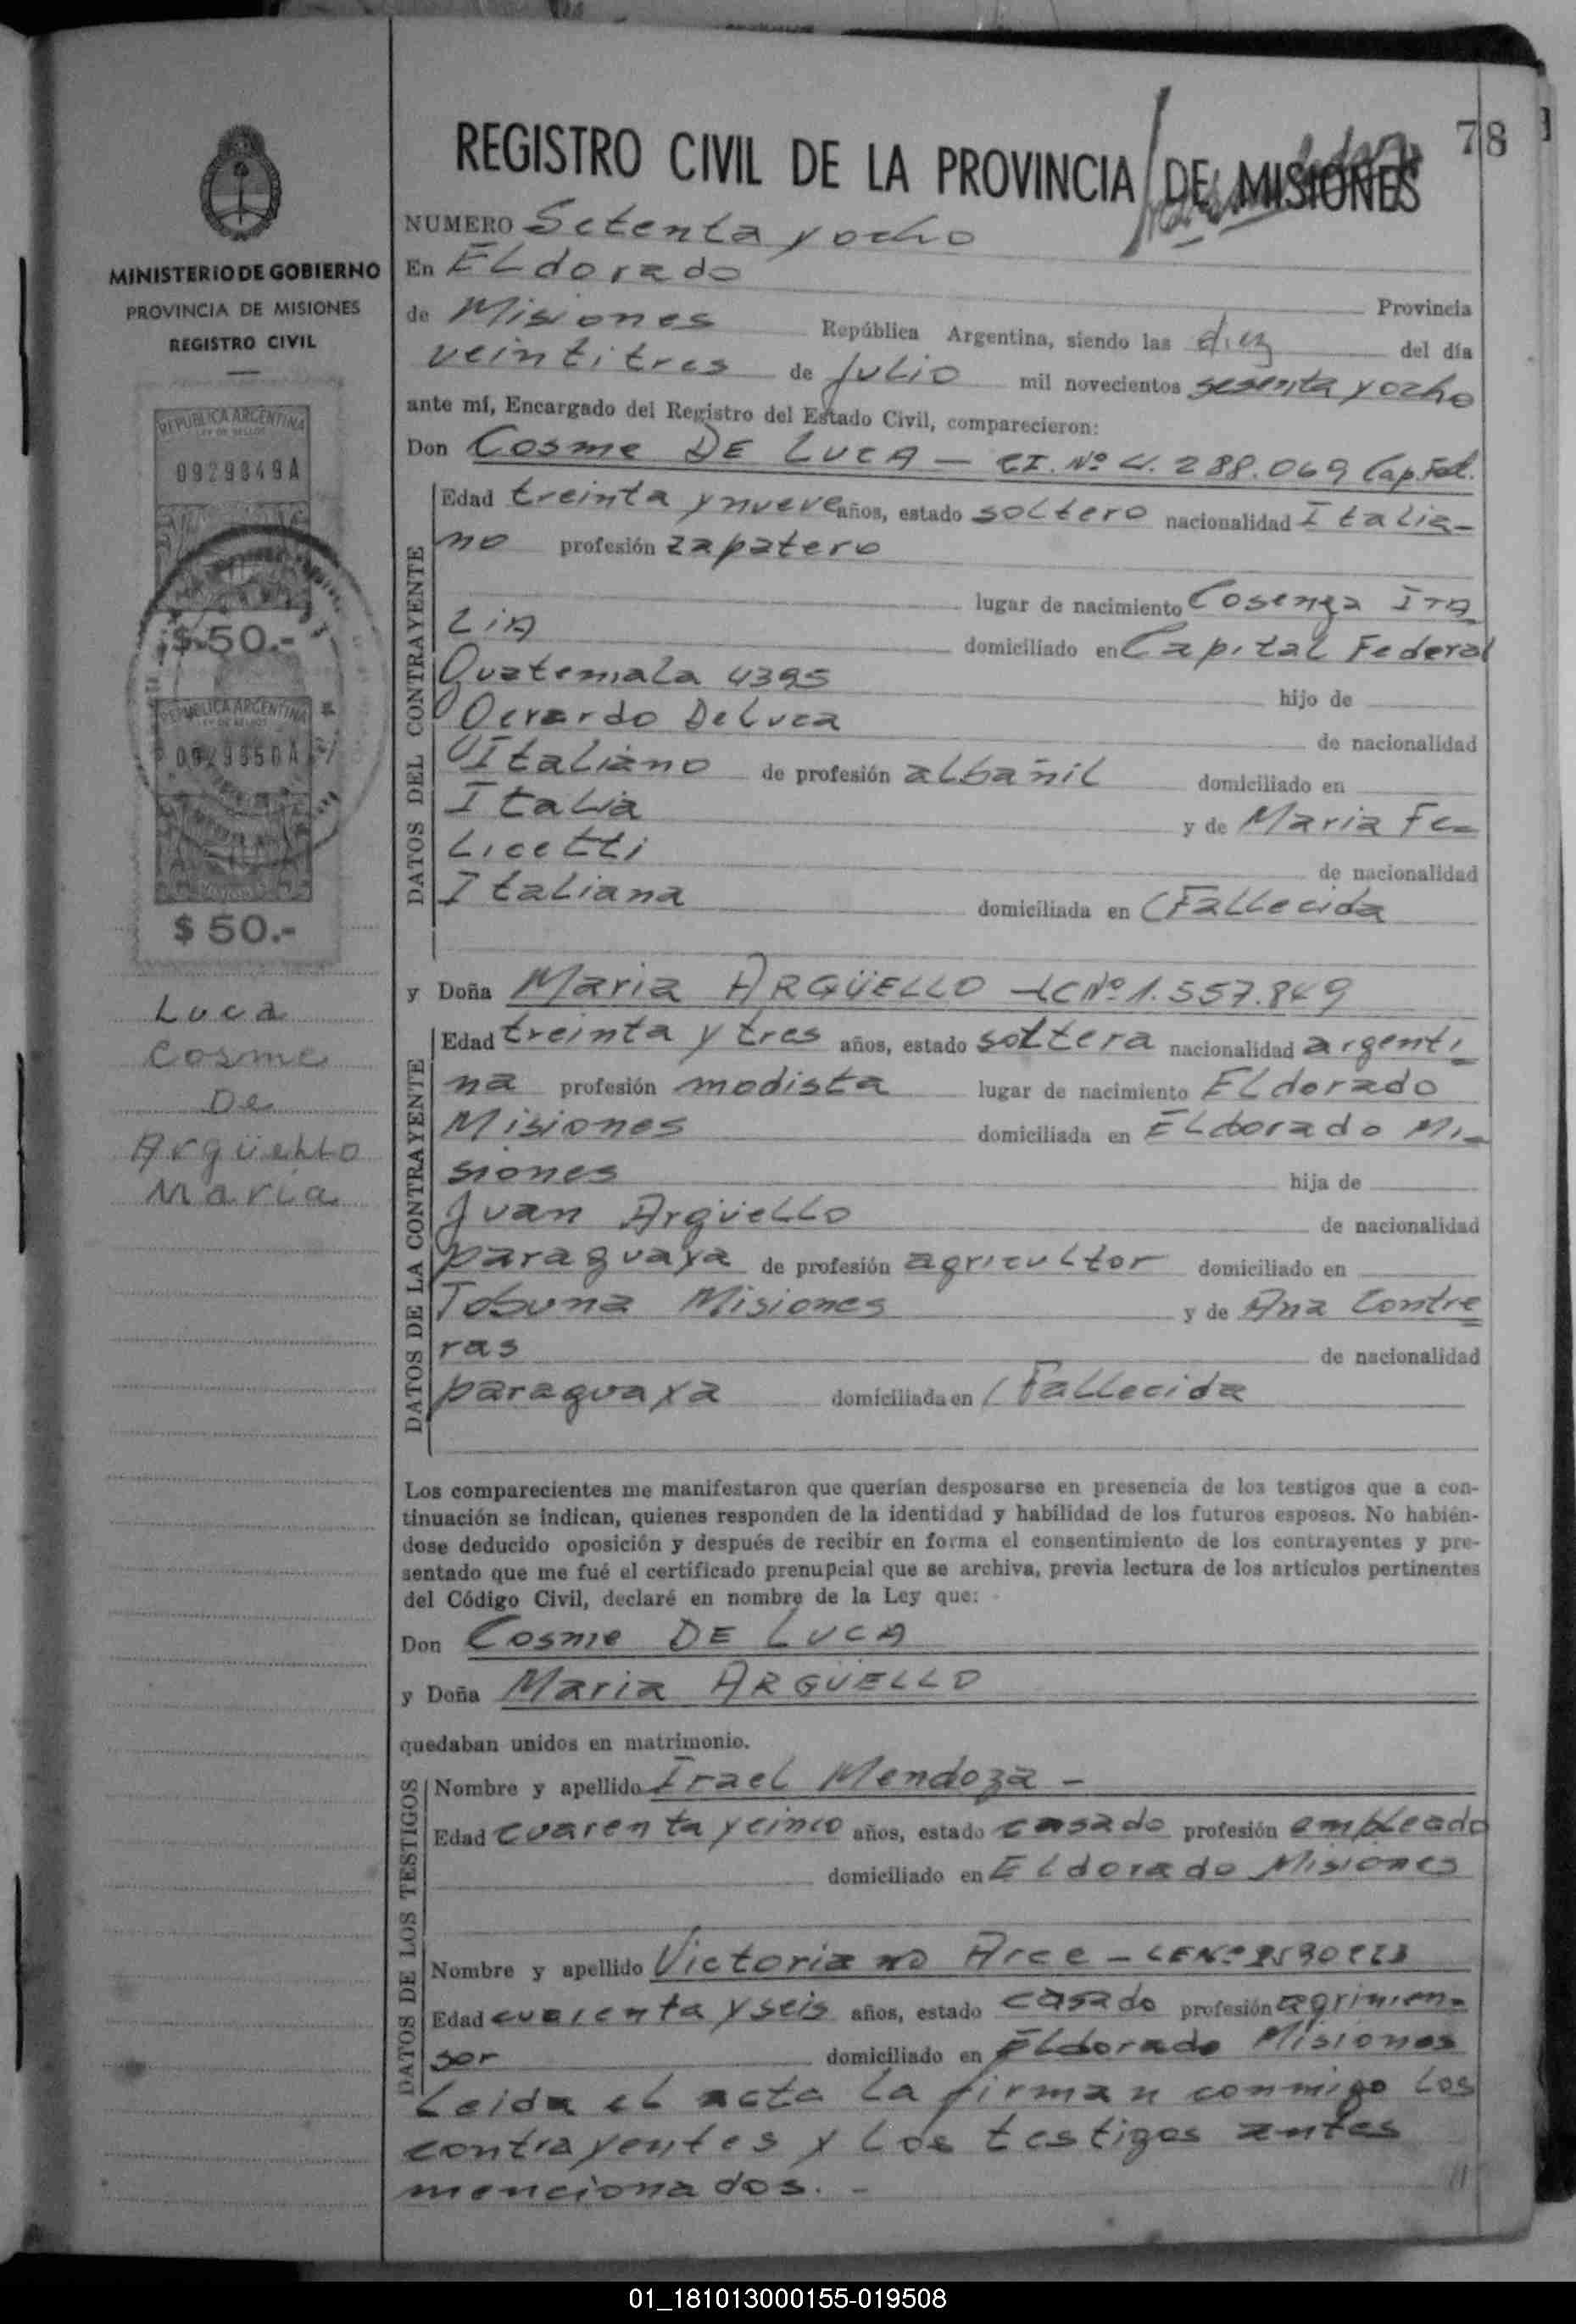 78
REGISTRO CIVIL DE LA PROVINCIA DE MISIONES
MINISTERIO DE GOBIERNO
PROVINCIA DE MISIONES
REGISTRO CIVIL
REPUBLICA ARGENTINA
LEY DE SELLOS
0929849A
$ 50.-
REPUBLICA ARGENTINA
$ 50.-
Luca
Cosme
De
Argüello
Maria
NUMERO Setenta y ocho
En ELdorado
Provincia
de Misiones República Argentina, siendo las diez del día
veintitres de Julio mil novecientos sesenta y ocho
ante mí, Encargado del Registro del Estado Civil, comparecieron:
Don Cosme DE LUCA - CI. Nº 4.288.069 Cap. Fed.
DATOS DEL CONTRAYENTE
Edad treinta y nueve años, estado soltero nacionalidad Italia-
no profesión zapatero
lugar de nacimiento Cosenza ITA
LiA domiciliado en Capital Federal
Guatemala 4395 hijo de
Gerardo De Luca de nacionalidad
Italiano de profesión albañil domiciliado en
Italia y de Maria Fe-
Licetti de nacionalidad
Italiana domiciliada en (Fallecida
y Doña Maria ARGÜELLO - LC Nº 1.557.849
DATOS DE LA CONTRAYENTE
Edad treinta y tres años, estado soltera nacionalidad argenti-
na profesión modista lugar de nacimiento ELdorado
Misiones domiciliada en ELdorado Mi-
siones hija de
Juan Argüello de nacionalidad
paraguaya de profesión agricultor domiciliado en
Tobuna Misiones y de Ana Contre
ras de nacionalidad
paraguaya domiciliada en (Fallecida
Los comparecientes me manifestaron que querían desposarse en presencia de los testigos que a con-
tinuación se indican, quienes responden de la identidad y habilidad de los futuros esposos. No habién-
dose deducido oposición y después de recibir en forma el consentimiento de los contrayentes y pre-
sentado que me fué el certificado prenupcial que se archiva, previa lectura de los artículos pertinentes
del Código Civil, declaré en nombre de la Ley que:
Don Cosme DE LUCA
y Doña Maria ARGÜELLO
quedaban unidos en matrimonio.
DATOS DE LOS TESTIGOS
Nombre y apellido Irael Mendoza -
Edad cuarenta y cinco años, estado casado profesión empleado
domiciliado en ELdorado Misiones
Nombre y apellido Victoriano Arce - LE Nº
Edad cuarenta y seis años, estado casado profesión agrimen-
sor domiciliado en ELdorado Misiones
Leida el acta la firman conmigo los
contrayentes y los testigos antes
mencionados. -
01_181013000155-019508